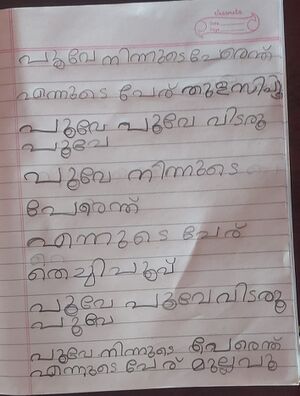 classmate
Date
Page
പൂവേ നിന്നുടെ പേരെന്ത്
എന്നുടെ പേര് തുളസിപ്പൂ
പൂവേ പൂവേ വിടരൂ
പൂവേ
പൂവേ നിന്നുടെ
പേരെന്ത്
എന്നുടെ പേര്
തെച്ചിപൂവ്
പൂവേ പൂവേ വിടരൂ
പൂവേ
പൂവേ നിന്നുടെ പേരെന്ത്
എന്നുടെ പേര് മുല്ലപൂ